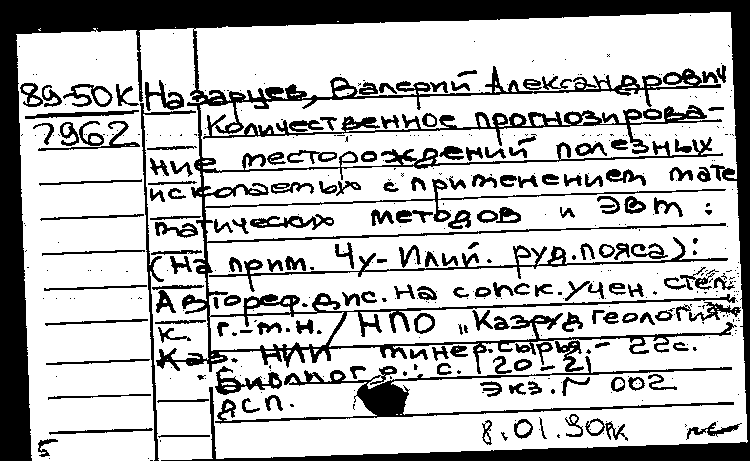 89-50К Назарцев, Валерий Александрович
7962 Количественное прогнозирова-
ние месторождений полезных
ископаемых с применением мате
матических методов и ЭВМ:
(На прим. Чу-Илий. руд. пояса):
Автореф. дис. на соиск. учен. степ.
к. г.-м.н. / НПО „Казрудгеология"
Каз. НИИ минер. сырья. - 22с.
Библиогр.: с. 20-21
ДСП. экз. № 002
8.01.90
5